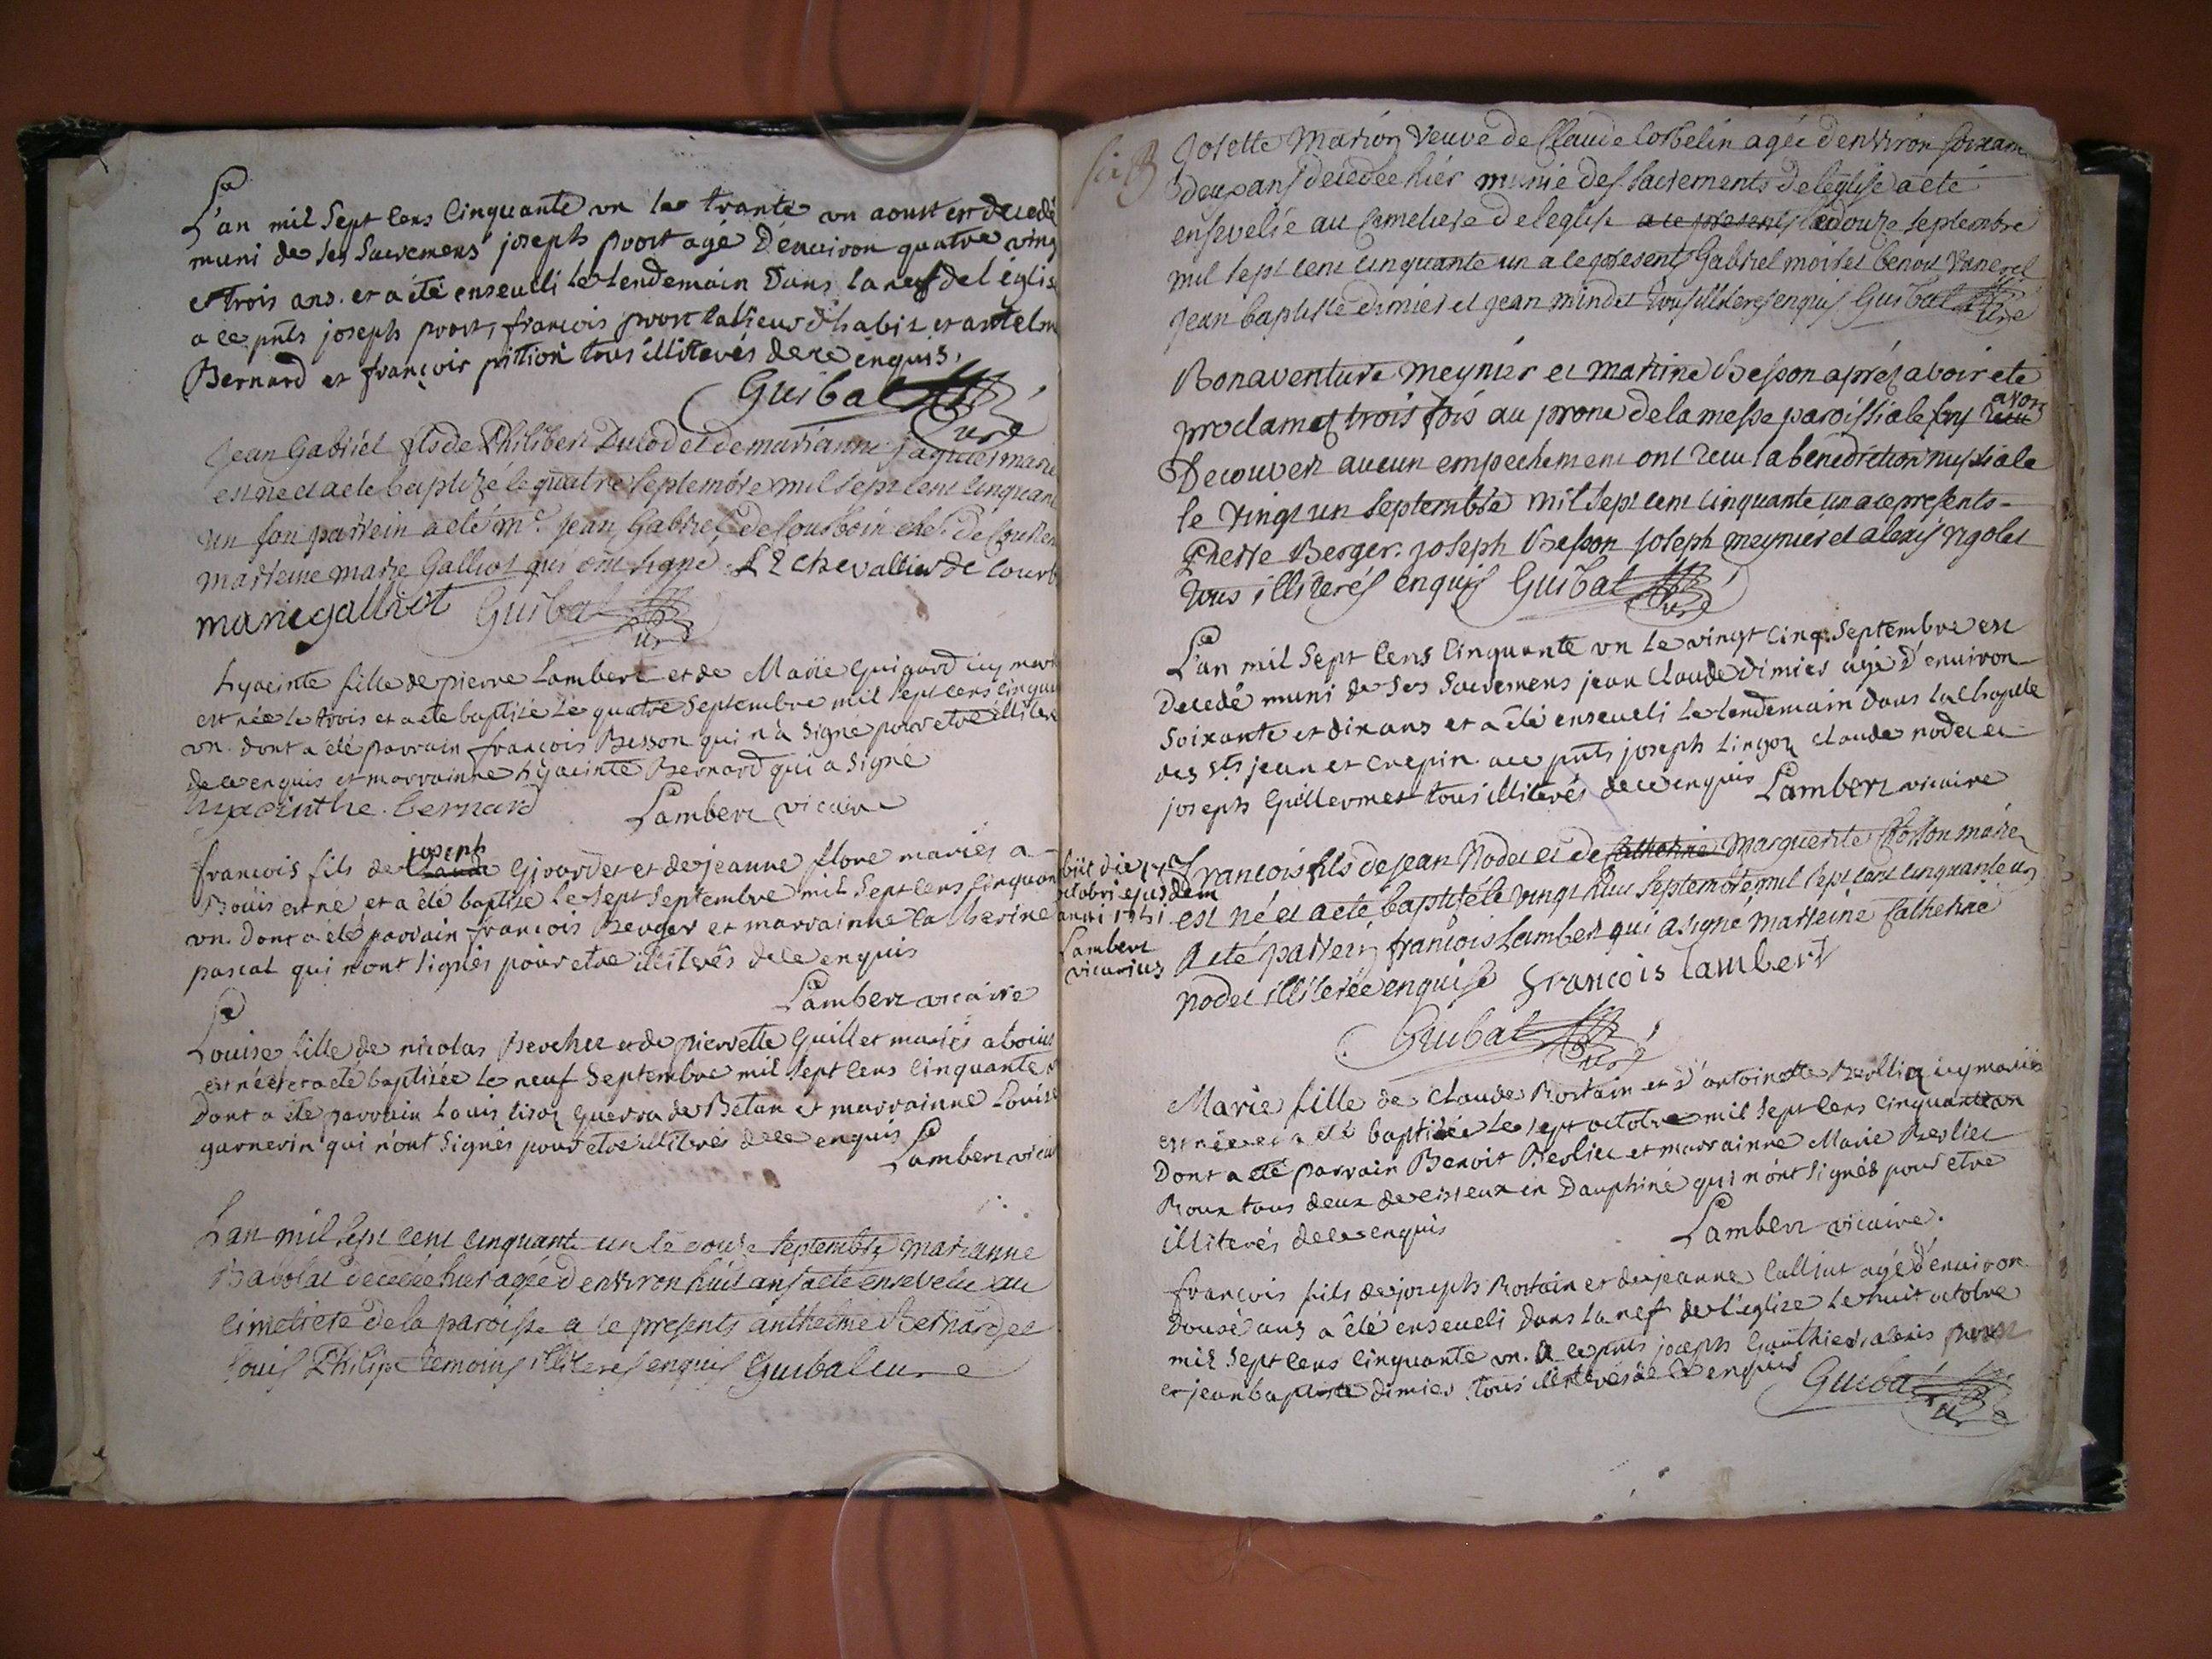 L'an mil Sept Cens Cinquante un le trante un aoust est decedé
muni de ses Sacremens joseph prost agé d'enuiron quatre ving
et trois ans. et a été enseueli le lendemain Dans la nef de l église
a ce pnts joseph prost, françois prost et antelm
Bernard et françois pition tous illiterés de ce enquis.
Guibal Curé
Jean Gabriel fils de Philibert Duclod et de marianne jaques marie
est ne et a ete baptizé le quatre septembre mil sept cent cinquan
un son parrein a eté mr. jean Gabriel de Courboin
marreine marie Galliot qui ont signé. chevallier de Courb
marie galliot Guibal Curé
hyacinte fille de pierre Lambert et de Marie Guigard icy mari
est née le trois et a ete baptisée le quatre Septembre mil Sept cens cinqua
un. dont a été parrain françois Besson qui n'a signé pour etre illiter
de ce enquis et marrainne hyacinte Bernard qui a Signé
hyacinthe. bernard Lambert vicaire
joseph
francois fils de Claude Girardet et de jeanne flore mariés a
Boüis est né et a été baptisé le Sept Septembre mil Sept Cens Cinquan
un. dont a été parrain francois Berger et marrainne Catherine
pascal qui n'ont Signés pour etre illiterés de ce enquis
Lambert vicaire
Louise fille de nicolas Berchet et de pierrette Guillet mariés a bouis
est née et a eté baptisée le neuf Septembre mil Sept Cens Cinquante
Dont a été parrain Louis Guerra de Betan et marrainne Louise
garnerin qui n'ont Signés pour etre illiterés de ce enquis
Lambert vicai
Lan mil sept cent cinquante un le douze septembre marianne
Babolat decedée hier agée d environ huit ans a eté ensevelie au
cimetiere de la paroisse a ce presents anthelme Bernard et
Louis Philipe temoins illiteres enquis Guibal cure
Josette Marion veuve de Claude Corbelin agée d environ soixan
deux ans decedée hier munie des sacrements de l eglise a eté
ensevelie au cimetiere de l eglise a ce presents le douze septembre
mil sept cent cinquante un a ce presents Gabriel moiret benoit vanerel
jean baptiste dimier et jean mindet tous illiteres enquis Guibal Curé
Bonaventure Meynier et Marine Besson aprés aboir eté
avoir
proclamez trois fois au prone de la messe paroissiale sans
Decouvert aucun empechement ont recu la bénediction nuptiale
le vingt un septembre mil sept cent cinquante un a ce presents
Pierre Berger. joseph Besson joseph meynier et alexis vigolet
tous illiterés enquis Guibal Curé
L'an mil Sept Cens Cinquante un le vingt cinq Septembre est
Decedé muni de Ses Sacremens jean Claude dimier agé d'enuiron
Soixante et dix ans et a été enseueli le lendemain dans la Chapele
des Sts jean et Crepin. a ce pnts joseph Lingon Claude nodet et
joseph Guillermet tous illiterés de ce enquis Lambert vicaire
biit die 17
octobri ejusdem
anni 1751
Lambert
vicarius
Francois fils de jean Nodet et de Catherine Marguerite mariez
est né et a eté baptisé le vingt huit septembre mil sept cent cinquante un
a eté parrein françois Lambert qui a signé marreine Catherine
nodet illiterée enquise François Lambert
Guibal Curé
Marie fille de Claude Rostain et d'antoinette icy mariés
est née et a été baptisée le sept octobre mil Sept Cens Cinquante un
Dont a eté parrain Benoit Berliet et marrainne Marie Berliet
Roux tous deux de en Dauphiné qui n'ont Signés pour etre
illiterés de ce enquis Lambert vicaire.
françois fils de joseph Rostain et de jeanne agé d'enuiron
Douze ans a été enseueli dans la nef de l'eglize le huit octobre
mil Sept Cens Cinquante un. a ce pnts joseph Gauthier, alexis prost
et jean baptiste dimier tous illiterés de ce enquis Guibal Curé